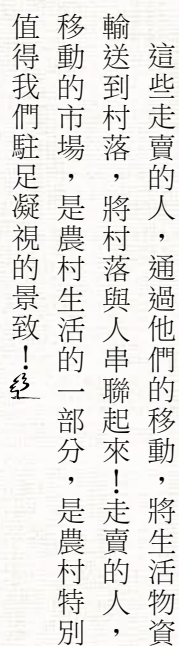 這些走賣的人，通過他們的移動，將生活物資
輸送到村落，將村落與人串聯起來！走賣的人，
移動的市場，是農村生活的一部分，是農村特別
值得我們駐足凝視的景致！